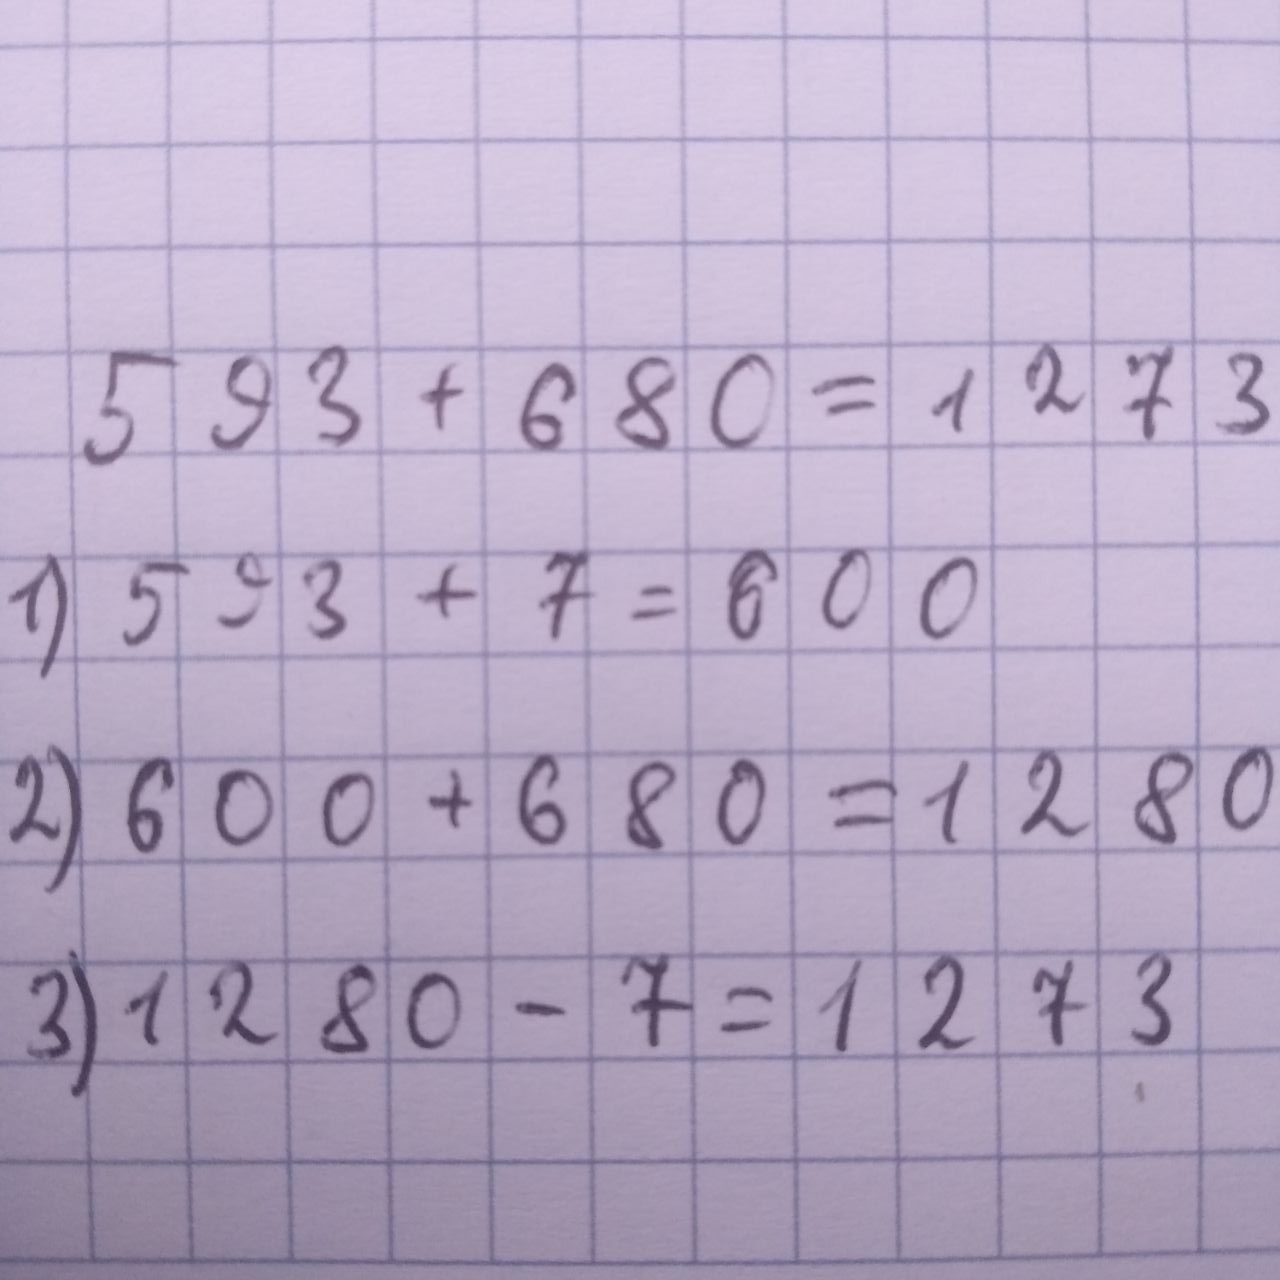 593+680=1273
1) 593+7=600
2) 600+680=1280
3) 1280-7=1273